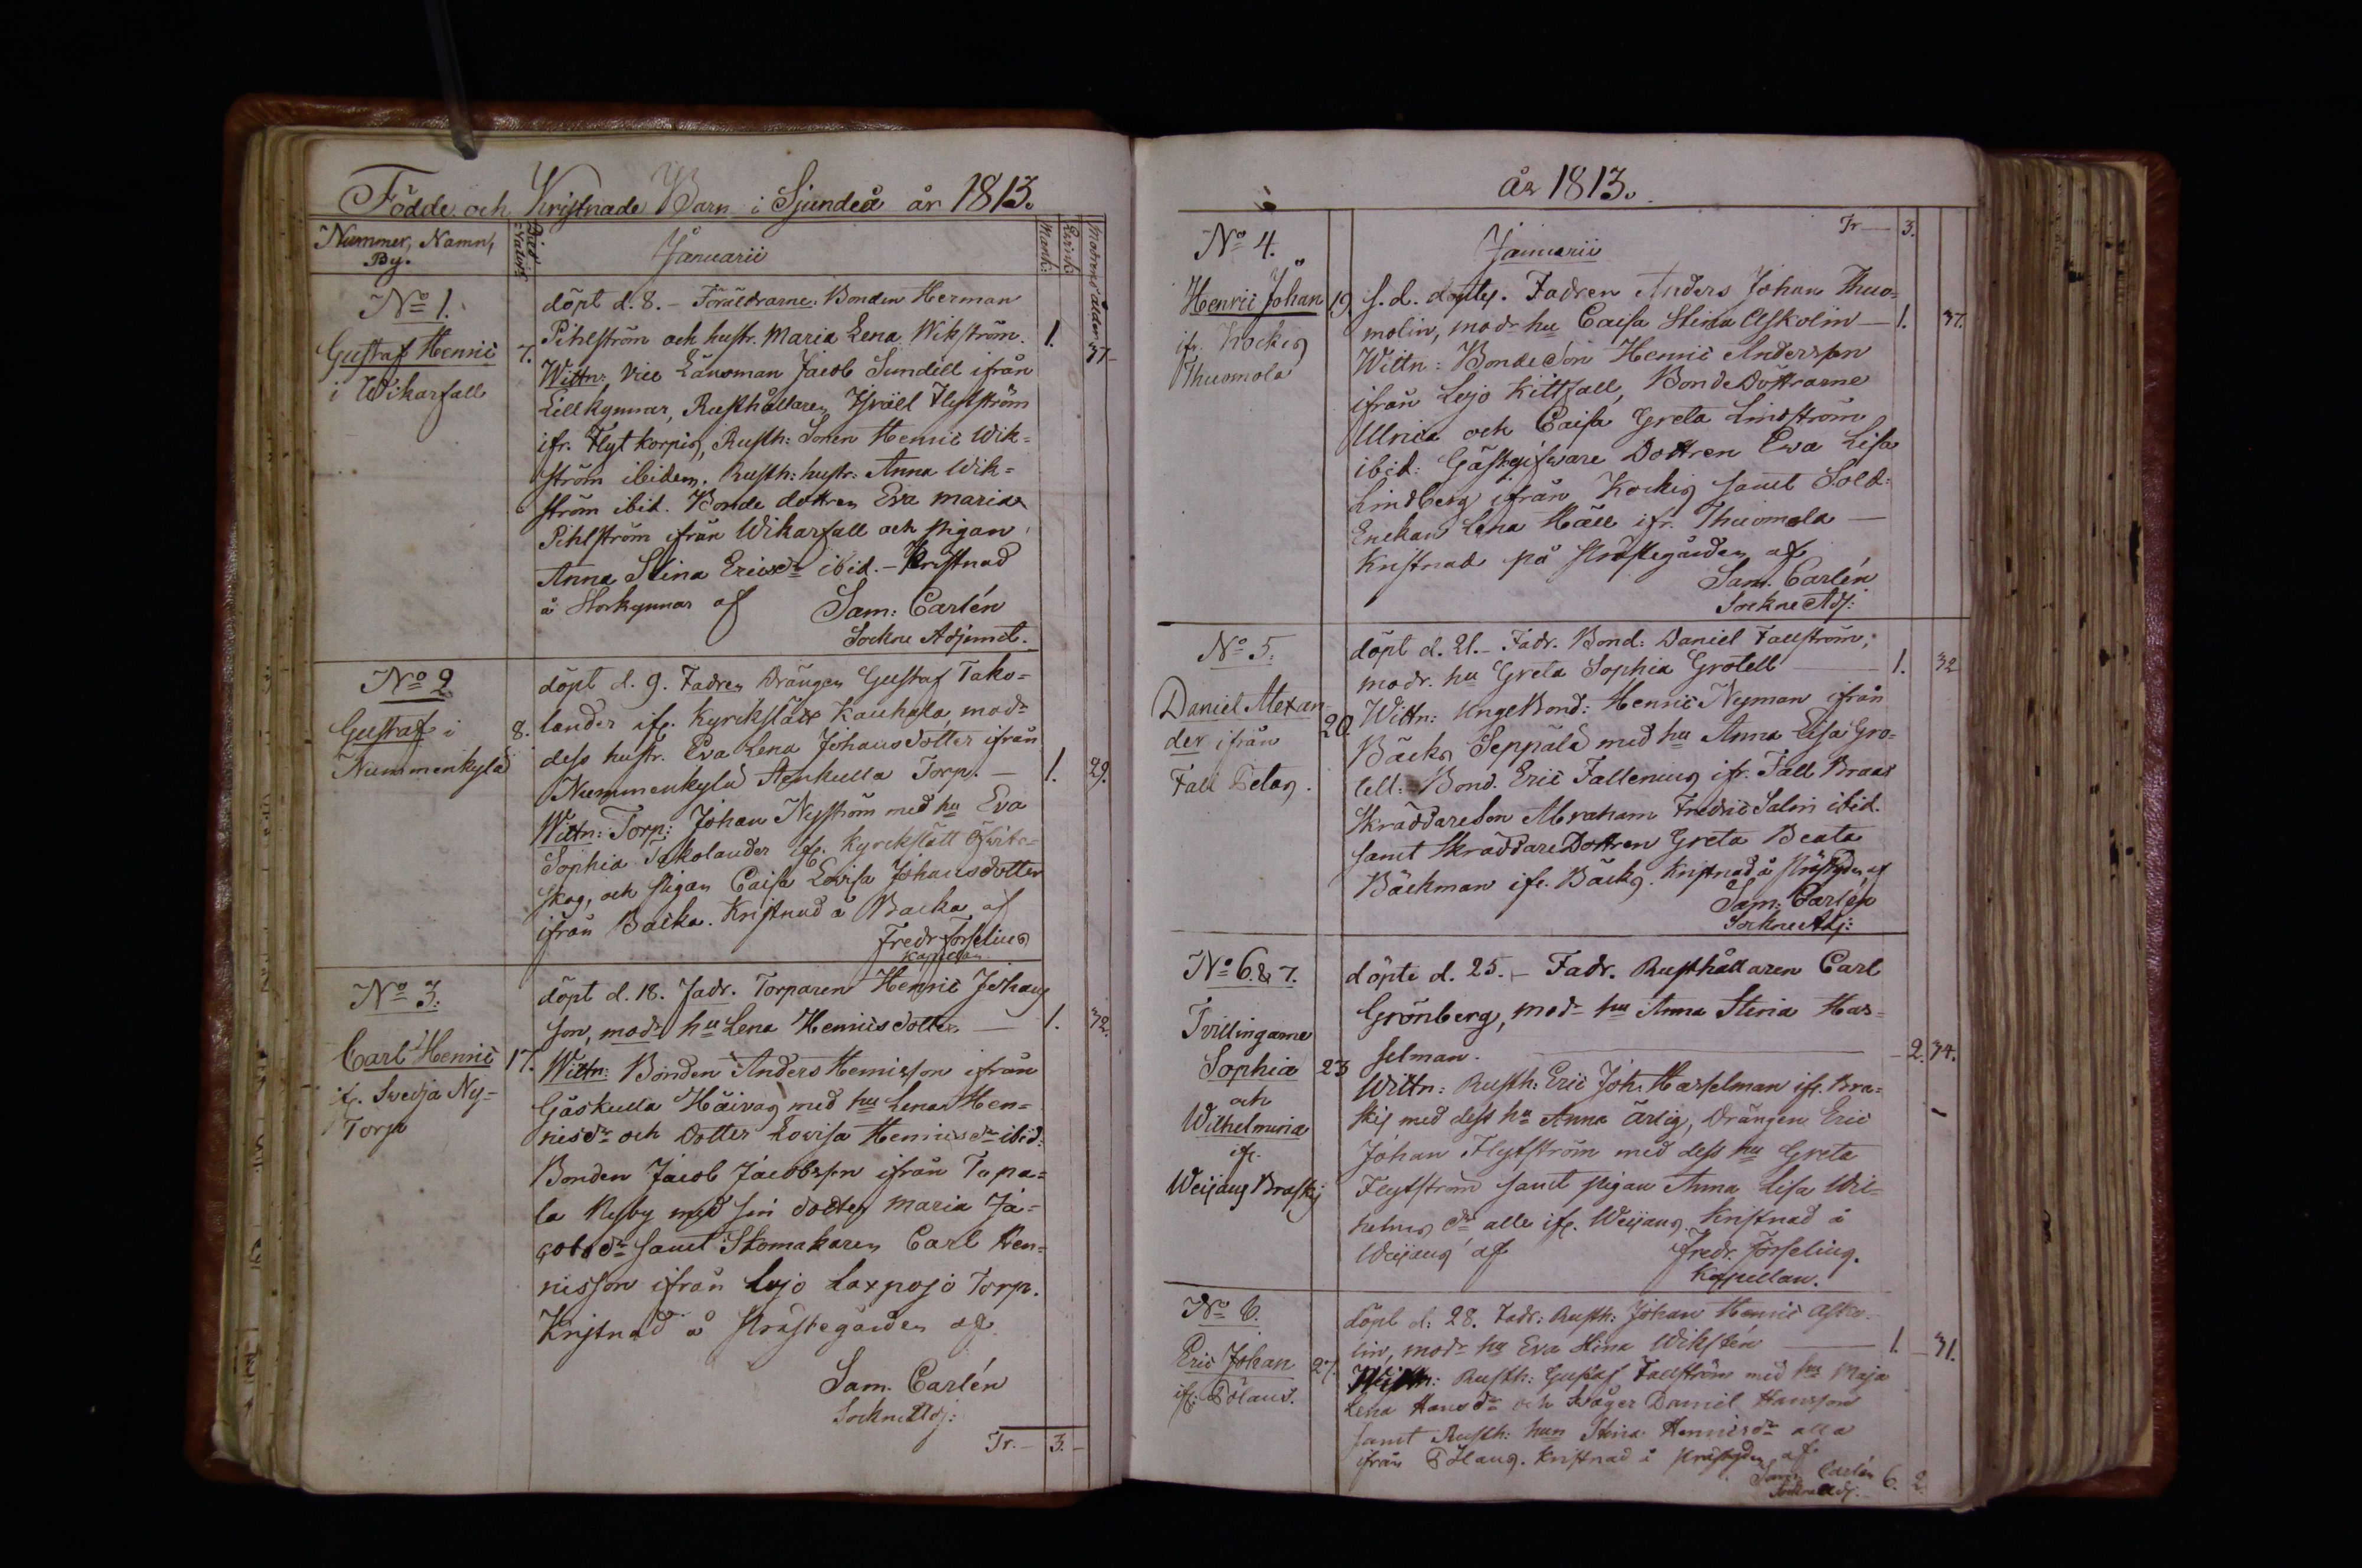 Födde och Kristnade Barn i Sjundeå år 1813.
Nummer, Namn, By.
Januarii
Mank:
Qvink:
Modrens ålder
No 1.
Gustaf Henric
i Wikarfall
7.
döpt d. 8. – Föräldrarne: Bonden Herman
Pihlström och hustr. Maria Lena Wikström.
1.
37
Wittn: Vice Länsman Jacob Sundell ifrån
Lillkynnar, Rusthållaren Israël Flytström
ifr. Flyt korpis, Rusth: Sonen Henric Wik=
ström ibidem. Rusth: hustr: Anna Wik=
ström ibid. Bonde dottren Eva Maria
Pihlström ifrån Wikarfall och pigan
Anna Stina Ericsdr ibid. – Kristnad
å Storkynnar af Sam: Carlén
Sockne Adjunct.
No 2.
Gustaf i
Nummenkylä
8.
döpt d. 9. Fadren Drängen Gustaf Tako=
lander ifr. Kyrckslätt Kauhala, modr
dess hustr. Eva Lena Johansdotter ifrån
Nummenkylä Stenkulla Torp. —
1.
29.
Wittn: Torp: Johan Nyström med hu Eva
Sophia Takolander ifr. Kyrckslätt
skog, och pigan Caisa Lovisa Johansdotter
ifrån Backa. Kristnad å Backa af
Fredr Forselius
Kapellan
No 3.
Carl Henric
if. Svedja Ny=
Torp
17.
döpt d. 18. Fadr. Torparen Henric Johans
son, modr hu Lena Henricsdotter —
1.
32.
Wittn: Bonden Anders Henricsson ifrån
Gåskulla Häivas med hu Lena Hen=
ricsdr och Dotter Lovisa Henricsdr ibid:
Bonden Jacob Jacobsson ifrån Tapa=
la Nyby med sin dotter Maria Ja=
cobsdr samt Skomakaren Carl Hen=
ricsson ifrån Lojo Laxpojo Torp.
Kristnad å Prästegården af
Sam. Carlén
Sockne Adj:
Tr. – 3. –
år 1813.
Tr — 3.
No 4.
Januarii
Henric Johan
ifr. Kockis
Thuomola
19.
s. d. döpter. Fadren Anders Johan Thuo=
molin, modr hu Caisa Stina Askolin —
1.
37.
Wittn: BondeSon Henric Andersson
ifrån Lojo Kittfall, BondeDöttrarne
Ulrica och Caisa Greta Lindström
ibid: Gästgifware Dottren Ewa Lisa
Lindberg ifrån Kockis samt Sold:
Enckan Lena Häll ifr. Thuomola —
Kristnad på Prästegården af
Sam. Carlén
Sockne Adj:
No 5.
Daniel Alexan
der ifrån
Fall Petas.
20.
döpt d. 21. – Fadr. Bond: Daniel Fallström,
modr. hu Greta Sophia Grotell —
1.
32
Wittn: UngeBond: Henric Nyman ifrån
Bäcks Seppälä med hu Anna Lisa Gro=
tell. Bond. Eric Fallenius ifr. Fall Braas
SkräddareSon Abraham Fredric Salin ibid.
samt SkräddareDottren Greta Beata
Bäckman ifr. Bäcks. Kristnad å Prästgden af
Sam: Carlén
Sockne Adj:
No 6. & 7.
Tvillingarne
Sophia
och
Wilhelmina
ifr.
Weijans Braskij
23
döpte d. 25. – Fadr. Rusthållaren Carl
Grönberg, modr hu Anna Stina Has=
selman. —
2. 34.
Wittn: Rusth: Eric Joh: Hasselman ifr. Bra=
skij med dess hu Anna Ärlig, Drängen Eric
Johan Flytström med dess hu Greta
Flytström samt pigan Anna Lisa Wil=
helmsdr alle ifr. Weijans. Kristnad å
Weijans af Fredr. Forselius.
Kapellan.
No 8.
Eric Johan
ifr. Pölans.
27.
döpt d. 28. Fadr: Rusth: Johan Henric Asko=
lin, modr hu Eva Stina Wikstén —
1. – 31.
Wittn: Rusth: Gustaf Fallström med hu Maja
Lena Hansdr och Swåger Daniel Hansson
samt Rusth: hun Stina Henricsdr alla
ifrån Pölans. Kristnad å Prästgden af
Sam. Carlén
Sockne Adj.
6. 2.